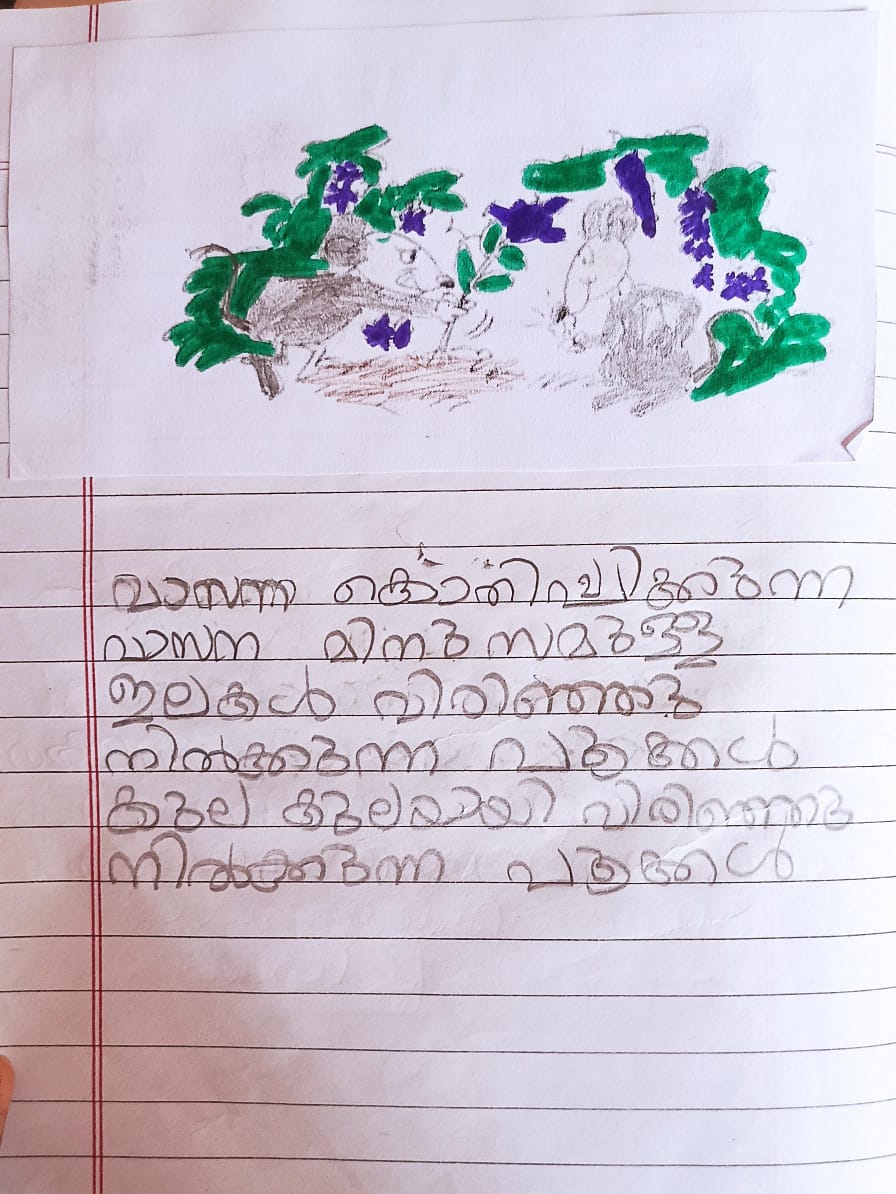 വാസന്ന കൊതിപ്പിക്കുന്ന
വാസന മിനുസമുള്ള
ഇലകൾ വിരിഞ്ഞു
നിൽക്കുന്ന പൂക്കൾ
കുല കുലയായി വിരിഞ്ഞു
നിൽക്കുന്ന പൂക്കൾ